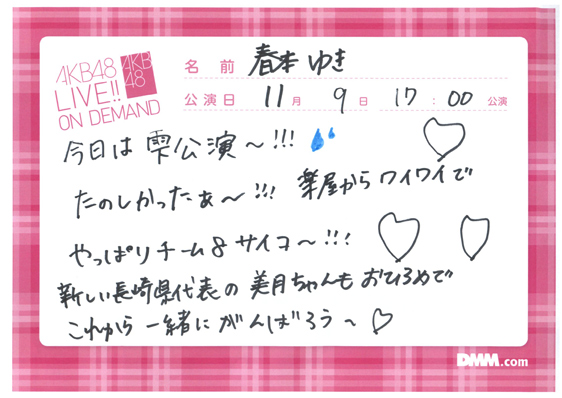 AKB48
LIVE!!
ON DEMAND
AKB
48
名前 春本 ゆき
公演日 11月 9日 17:00 公演
今日は 雫公演～!!!
たのしかったぁ～!!! 楽屋からワイワイで
やっぱりチーム8サイコ～!!!
新しい長崎県代表の 美月ちゃんも おひろめで
これから 一緒に がんばろう～
DMM.com